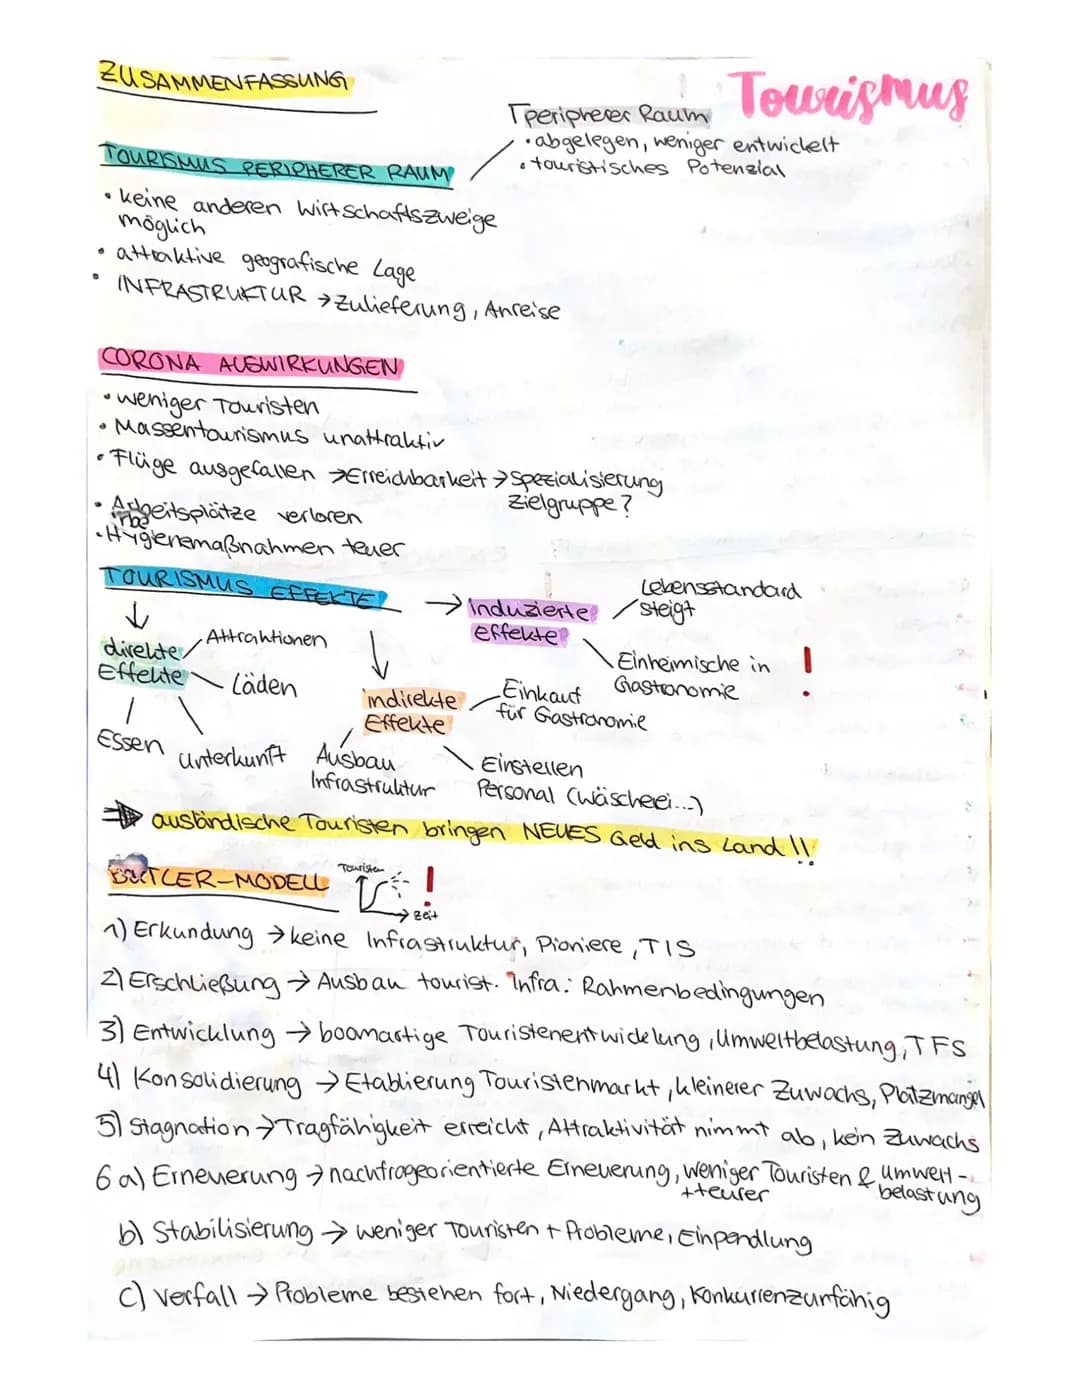 ZUSAMMENFASSUNG
Tourismus
peripherer Raum
• abgelegen, weniger entwickelt
• touristisches Potenzial
TOURISMUS PERIPHERER RAUM
• keine anderen Wirtschaftszweige
möglich
• attraktive geografische Lage
• INFRASTRUKTUR → Zulieferung, Anreise
CORONA AUSWIRKUNGEN
• weniger Touristen
• Massentourismus unattraktiv
• Flüge ausgefallen → Erreichbarkeit → Spezialisierung
Zielgruppe?
• Arbeitsplätze verloren
• Hygienemaßnahmen teuer
TOURISMUS EFFEKTE
→ induzierte
effekte
Lebensstandard
steigt
Einheimische in
Gastronomie
!
direkte
Effekte
Attraktionen
Läden
Essen
Unterkunft
indirekte
Effekte
Einkauf
für Gastronomie
Ausbau
Infrastruktur
Einstellen
Personal (Wäscherei...)
⇒ ausländische Touristen bringen NEUES Geld ins Land!!
BUTLER-MODELL
Touristen
Zeit
!
1) Erkundung → keine Infrastruktur, Pioniere, TIS
2) Erschließung → Ausbau tourist. Infra. Rahmenbedingungen
3) Entwicklung → boomartige Touristenentwicklung, Umweltbelastung, TFS
4) Konsolidierung → Etablierung Touristenmarkt, kleinerer Zuwachs, Platzmangel
5) Stagnation → Tragfähigkeit erreicht, Attraktivität nimmt ab, kein Zuwachs
6 a) Erneuerung → nachfrageorientierte Erneuerung, weniger Touristen & Umwelt-
+teurer
belastung
b) Stabilisierung → weniger Touristen + Probleme, Einpendlung
c) Verfall → Probleme bestehen fort, Niedergang, Konkurrenzunfähig